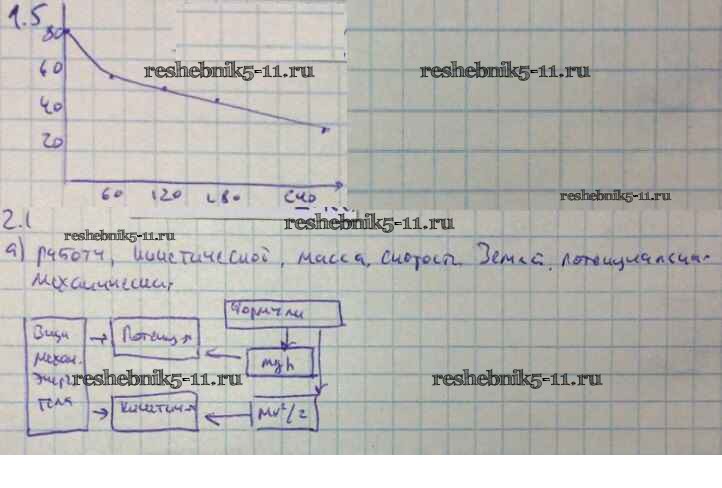 1.5
80
60
40
20
60 120 180 240
reshebnik5-11.ru
reshebnik5-11.ru
reshebnik5-11.ru
reshebnik5-11.ru
2.1
reshebnik5-11.ru
а) работа, кинетической, масса, скорость, Земля, потенциальная
механическая
Формулы
Виды механ. энерг. тела
Потенц-я
mgh
reshebnik5-11.ru
reshebnik5-11.ru
Кинетич-я
mv²/2